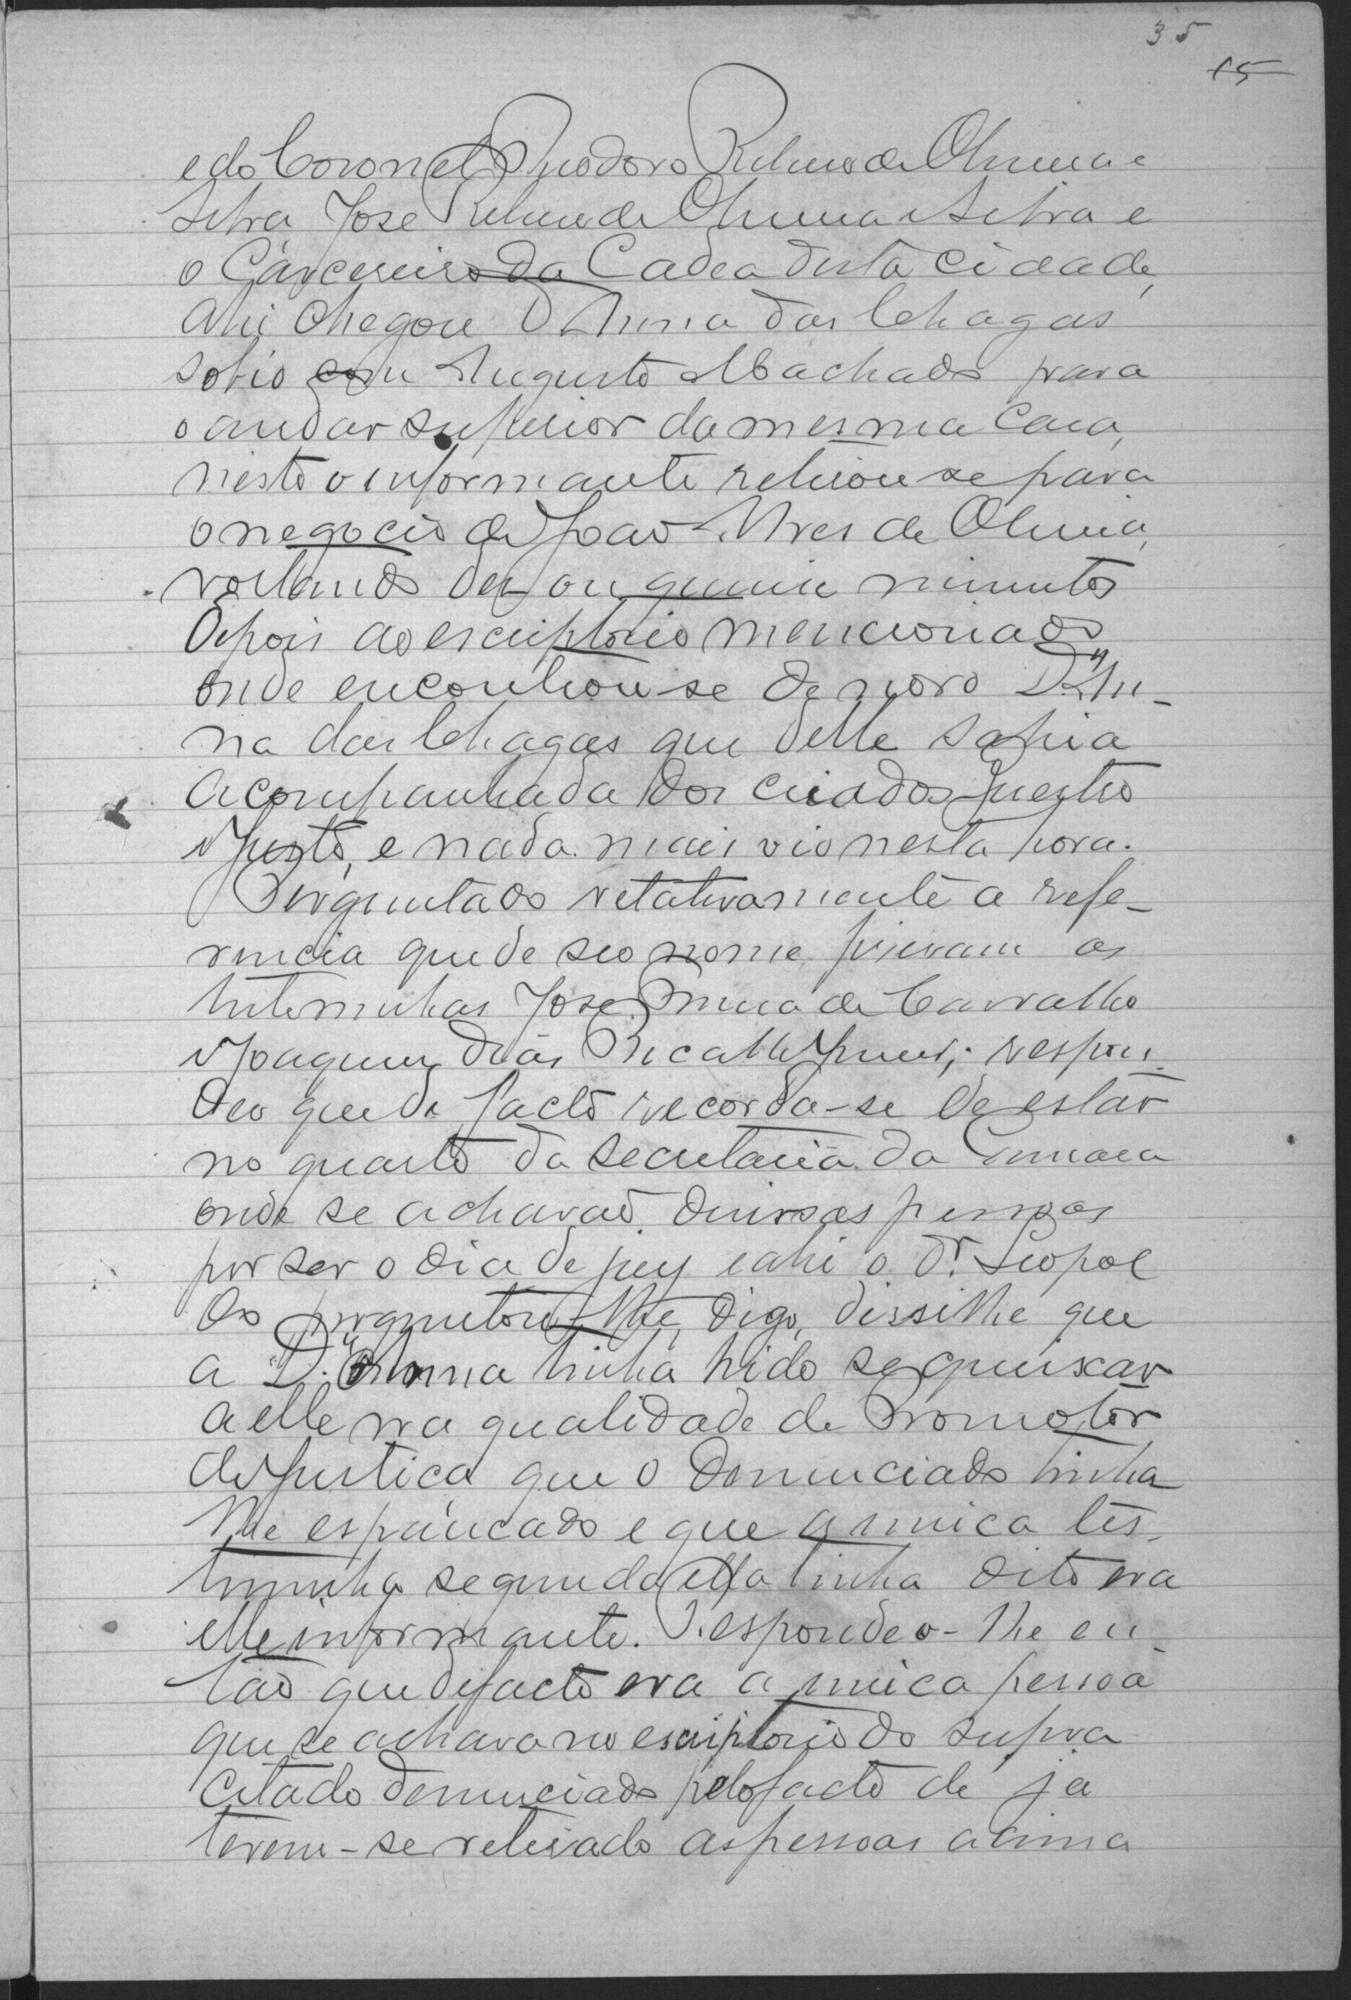 35
15
e do Coronel Theodoro Ribeiro de Oliveira e
Silva José Ribeiro de Oliveira e Silva e
o Carcereiro da Cadea desta cidade,
ahi chegou D. Anna das Chagas
sobio com Augusto Machado para
o andar superior da mesma casa,
nisto o informante retirou se para
o negocio de João Alves de Oliveira,
voltando dez ou quinze minutos
depois ao escriptorio mencionado
onde encontrou-se de novo D. An-
na das Chagas que delle sahia
acompanhada dos criados
e Justo, e nada mais vio nesta hora.
Perguntado relativamente a refe-
rencia que de seo nome fizeram as
testemunhas José de Carvalho
e Joaquim Dias Bicalho; respon-
deo que de facto recorda-se de estar
no quarto da secretaria da Camara
onde se achavaõ diversas pessoas
por ser o dia de jury e ahi o Dr. Leopol
do perguntou-lhe, digo, disse lhe que
a D. Anna tinha hido se queixar
a elle na qualidade de Promotor
de Justiça que o denunciado tinha
lhe espancado e que a unica tes-
timunha segundo ella tinha dito era
elle informante. Respondeo-lhe en-
tão que de facto era a unica pessoa
que se achava no escriptorio do supra
citado denunciado pelo facto de ja
terem-se retirado as pessoas acima